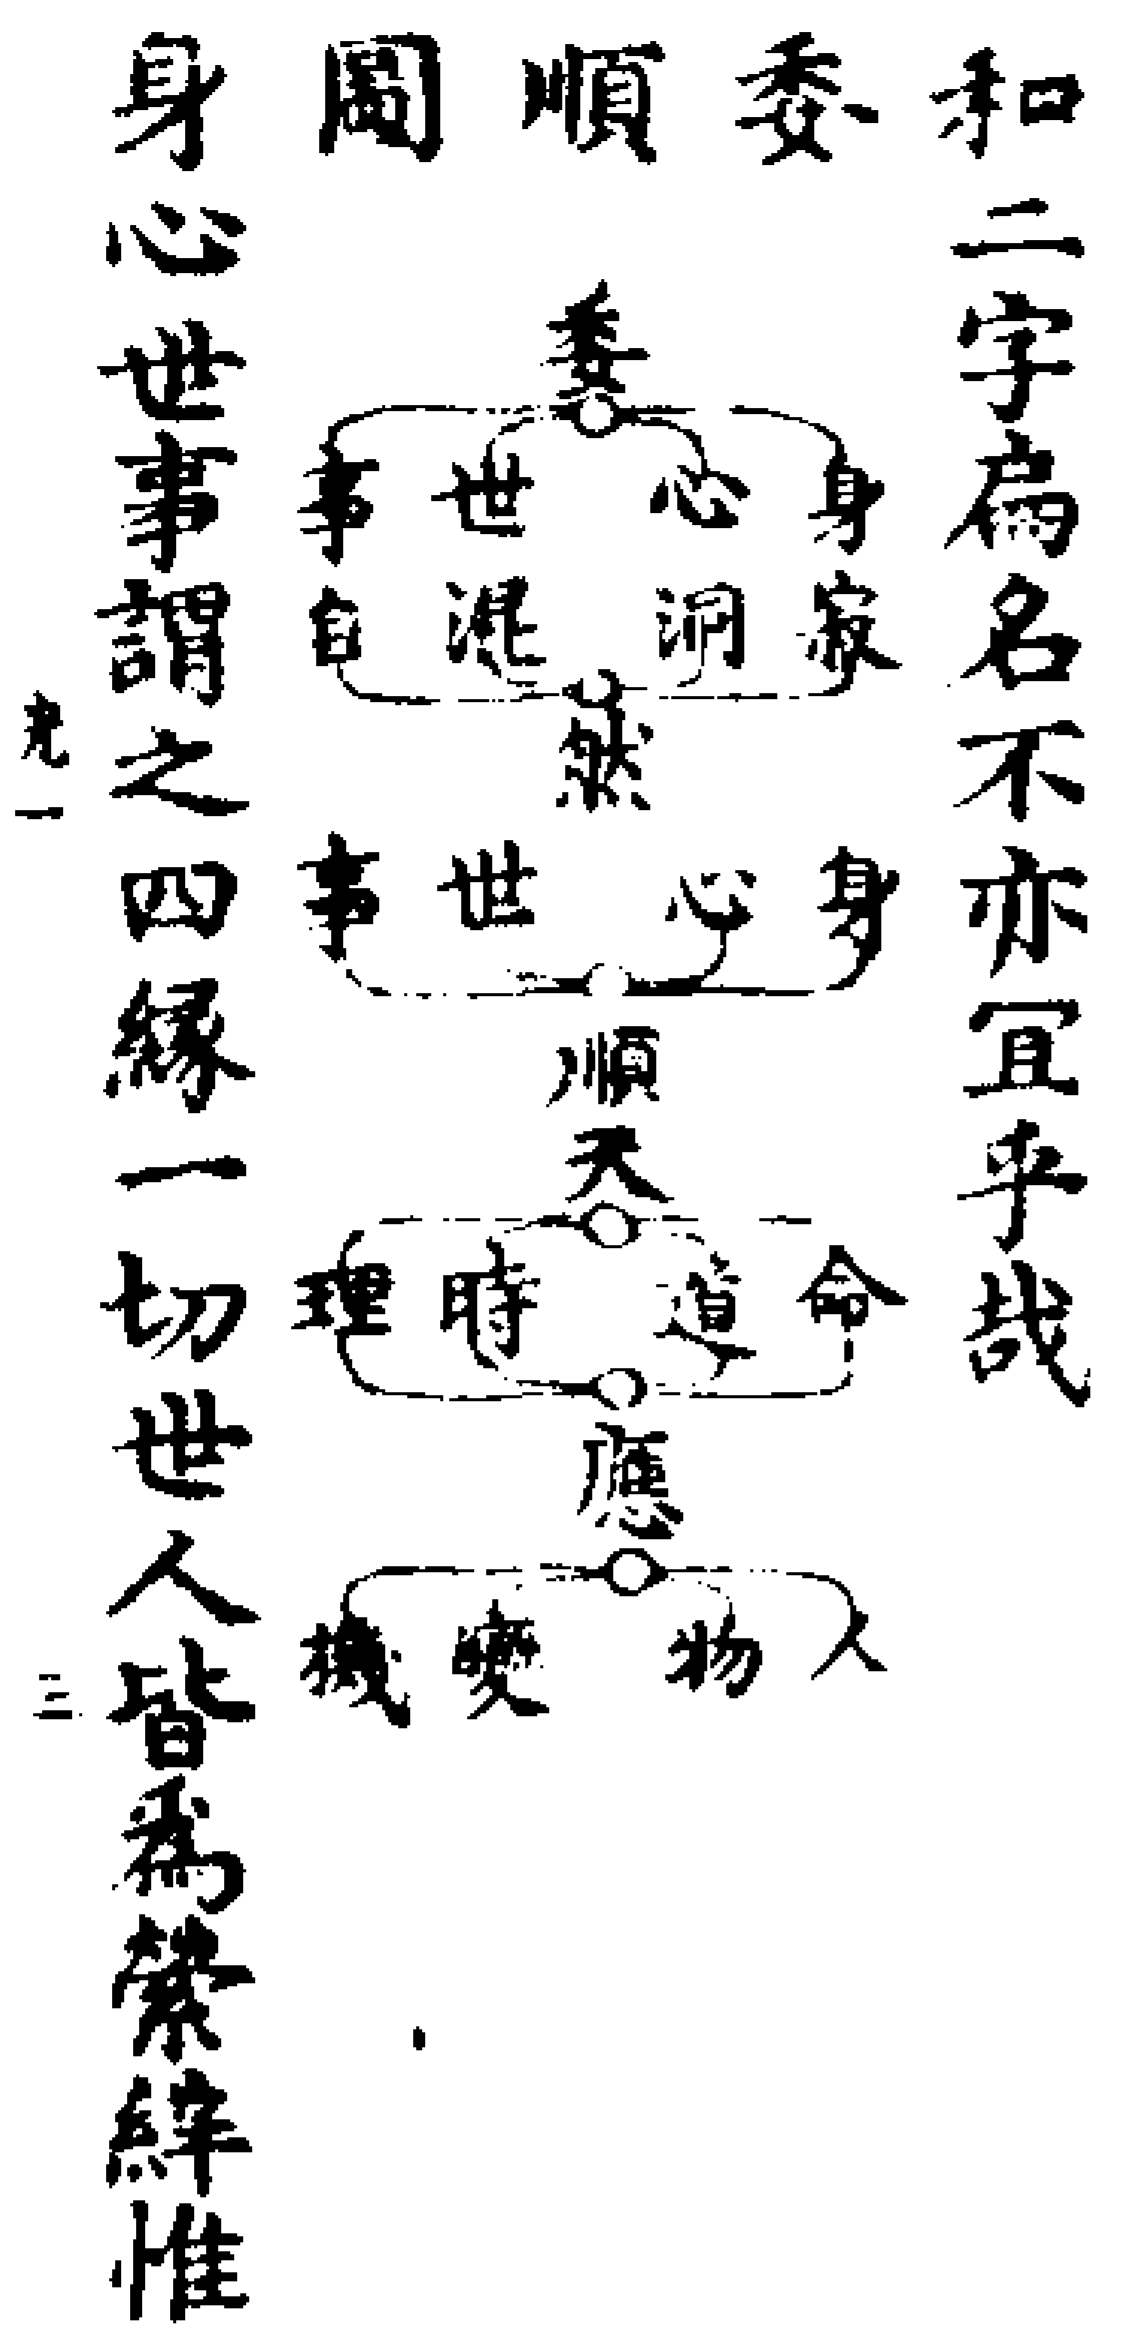 和二字扁名不亦宜乎哉
委順圖
委
身心世事
寂洞混自
然
身心世事
順
天
命道時理
應
人物變機
身心世事謂之四緣一切世人皆爲縈絆惟
光一
三